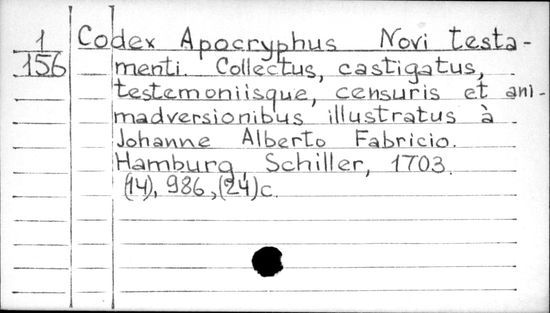 1
156
Codex Apocryphus Novi testa-
menti. Collectus, castigatus,
testemoniisque, censuris et ani-
madversionibus illustratus à
Johanne Alberto Fabricio.
Hamburg, Schiller, 1703.
(14), 986, (24)c.